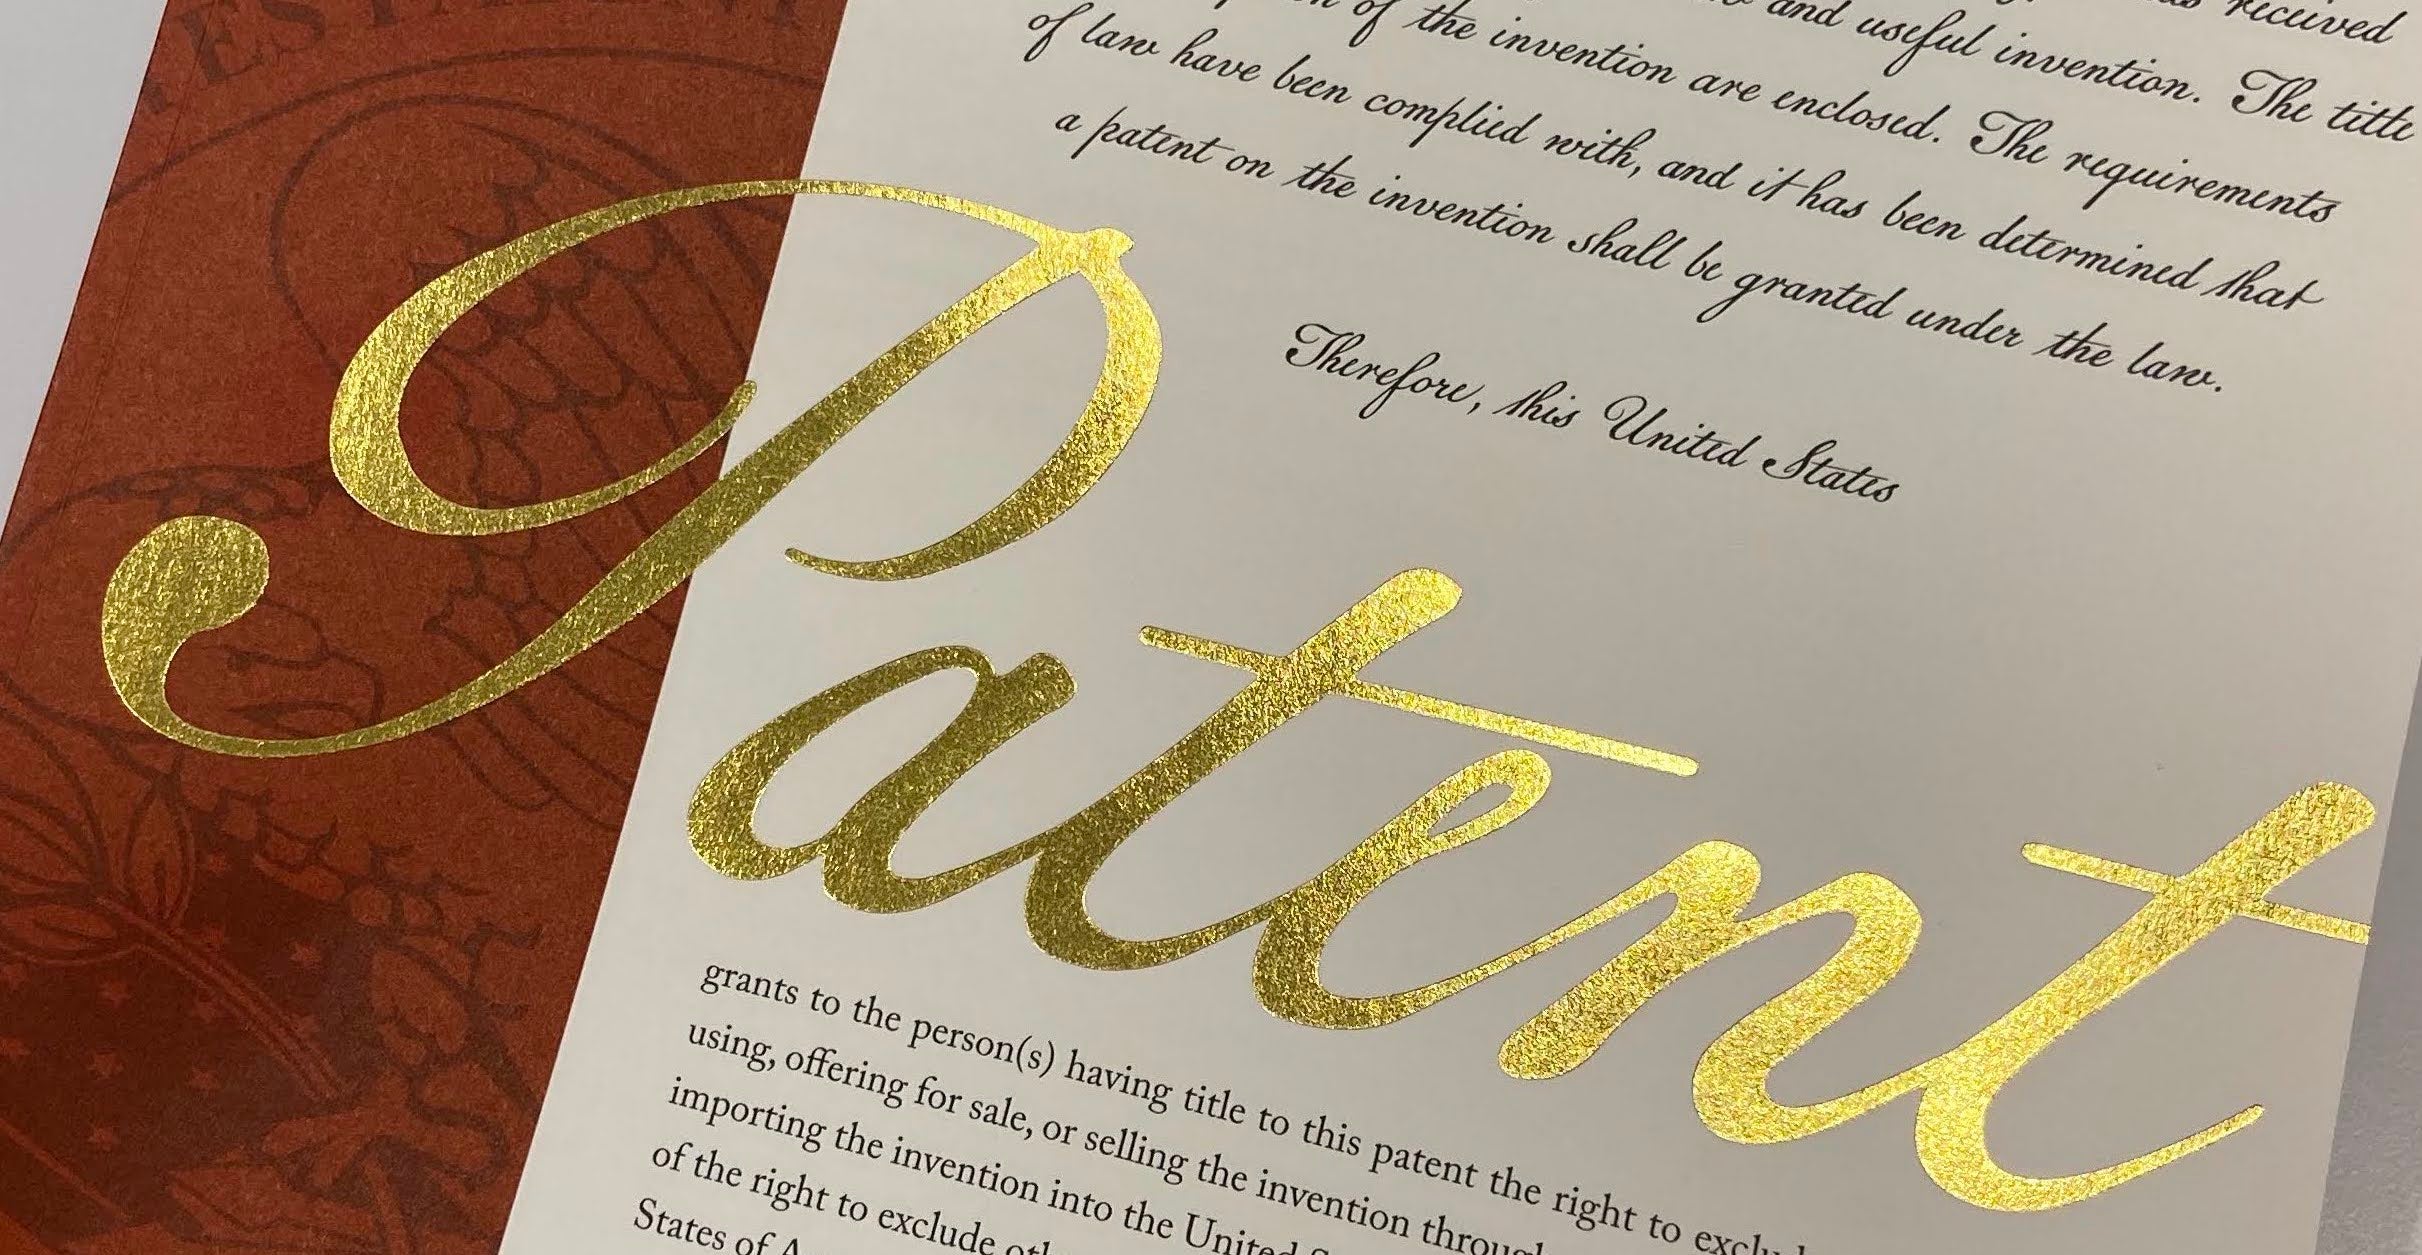 received
of the invention are enclosed. The requirements
and useful invention. The title
of law have been complied with, and it has been determined that
a patent on the invention shall be granted under the law.
Therefore, this United States
Patent
grants to the person(s) having title to this patent the right to
using, offering for sale, or selling the invention
importing the invention into the United
of the right to exclude
States of